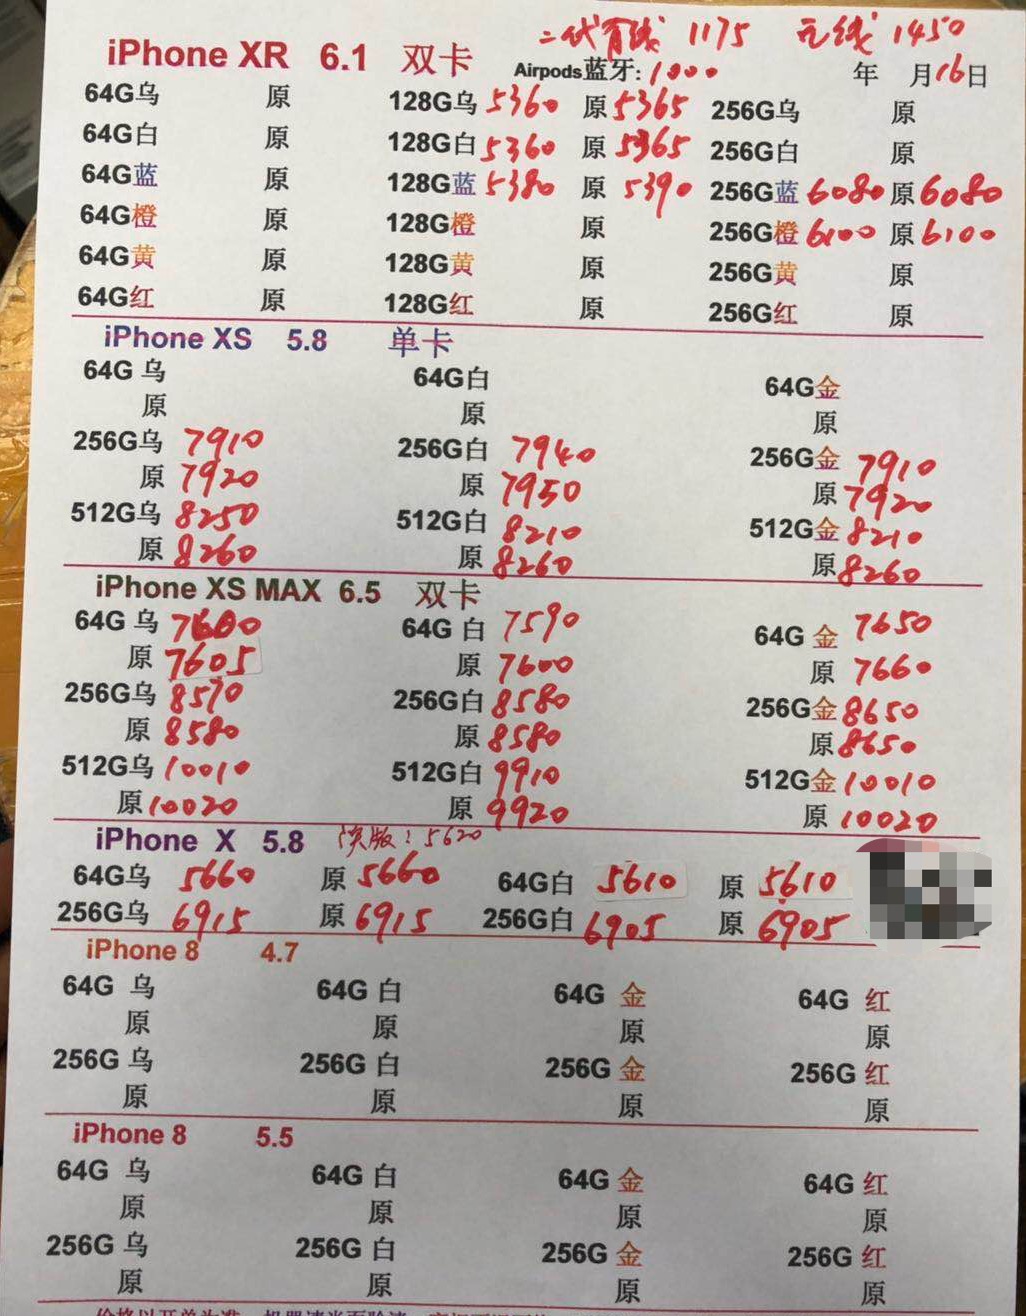 二代有线 1175 无线 1450
iPhone XR 6.1 双卡 Airpods蓝牙:1000 年 月16日
64G乌 原 128G乌 5360 原 5365 256G乌 原
64G白 原 128G白 5360 原 5365 256G白 原
64G蓝 原 128G蓝 5380 原 5390 256G蓝 6080 原 6080
64G橙 原 128G橙 原 256G橙 6100 原 6100
64G黄 原 128G黄 原 256G黄 原
64G红 原 128G红 原 256G红 原
iPhone XS 5.8 单卡
64G 乌 64G白 64G金
原 原 原
256G乌 7910 256G白 7940 256G金 7910
原 7920 原 7950 原 7920
512G乌 8250 512G白 8210 512G金 8210
原 8260 原 8260 原 8260
iPhone XS MAX 6.5 双卡
64G 乌 7600 64G 白 7590 64G 金 7650
原 7605 原 7600 原 7660
256G乌 8570 256G白 8580 256G金 8650
原 8580 原 8580 原 8650
512G乌 10010 512G白 9910 512G金 10010
原 10020 原 9920 原 10020
iPhone X 5.8 版: 5620
64G乌 5660 原 5660 64G白 5610 原 5610
256G乌 6915 原 6915 256G白 6905 原 6905
iPhone 8 4.7
64G 乌 64G 白 64G 金 64G 红
原 原 原 原
256G 乌 256G 白 256G 金 256G 红
原 原 原 原
iPhone 8 5.5
64G 乌 64G 白 64G 金 64G 红
原 原 原 原
256G 乌 256G 白 256G 金 256G 红
原 原 原 原